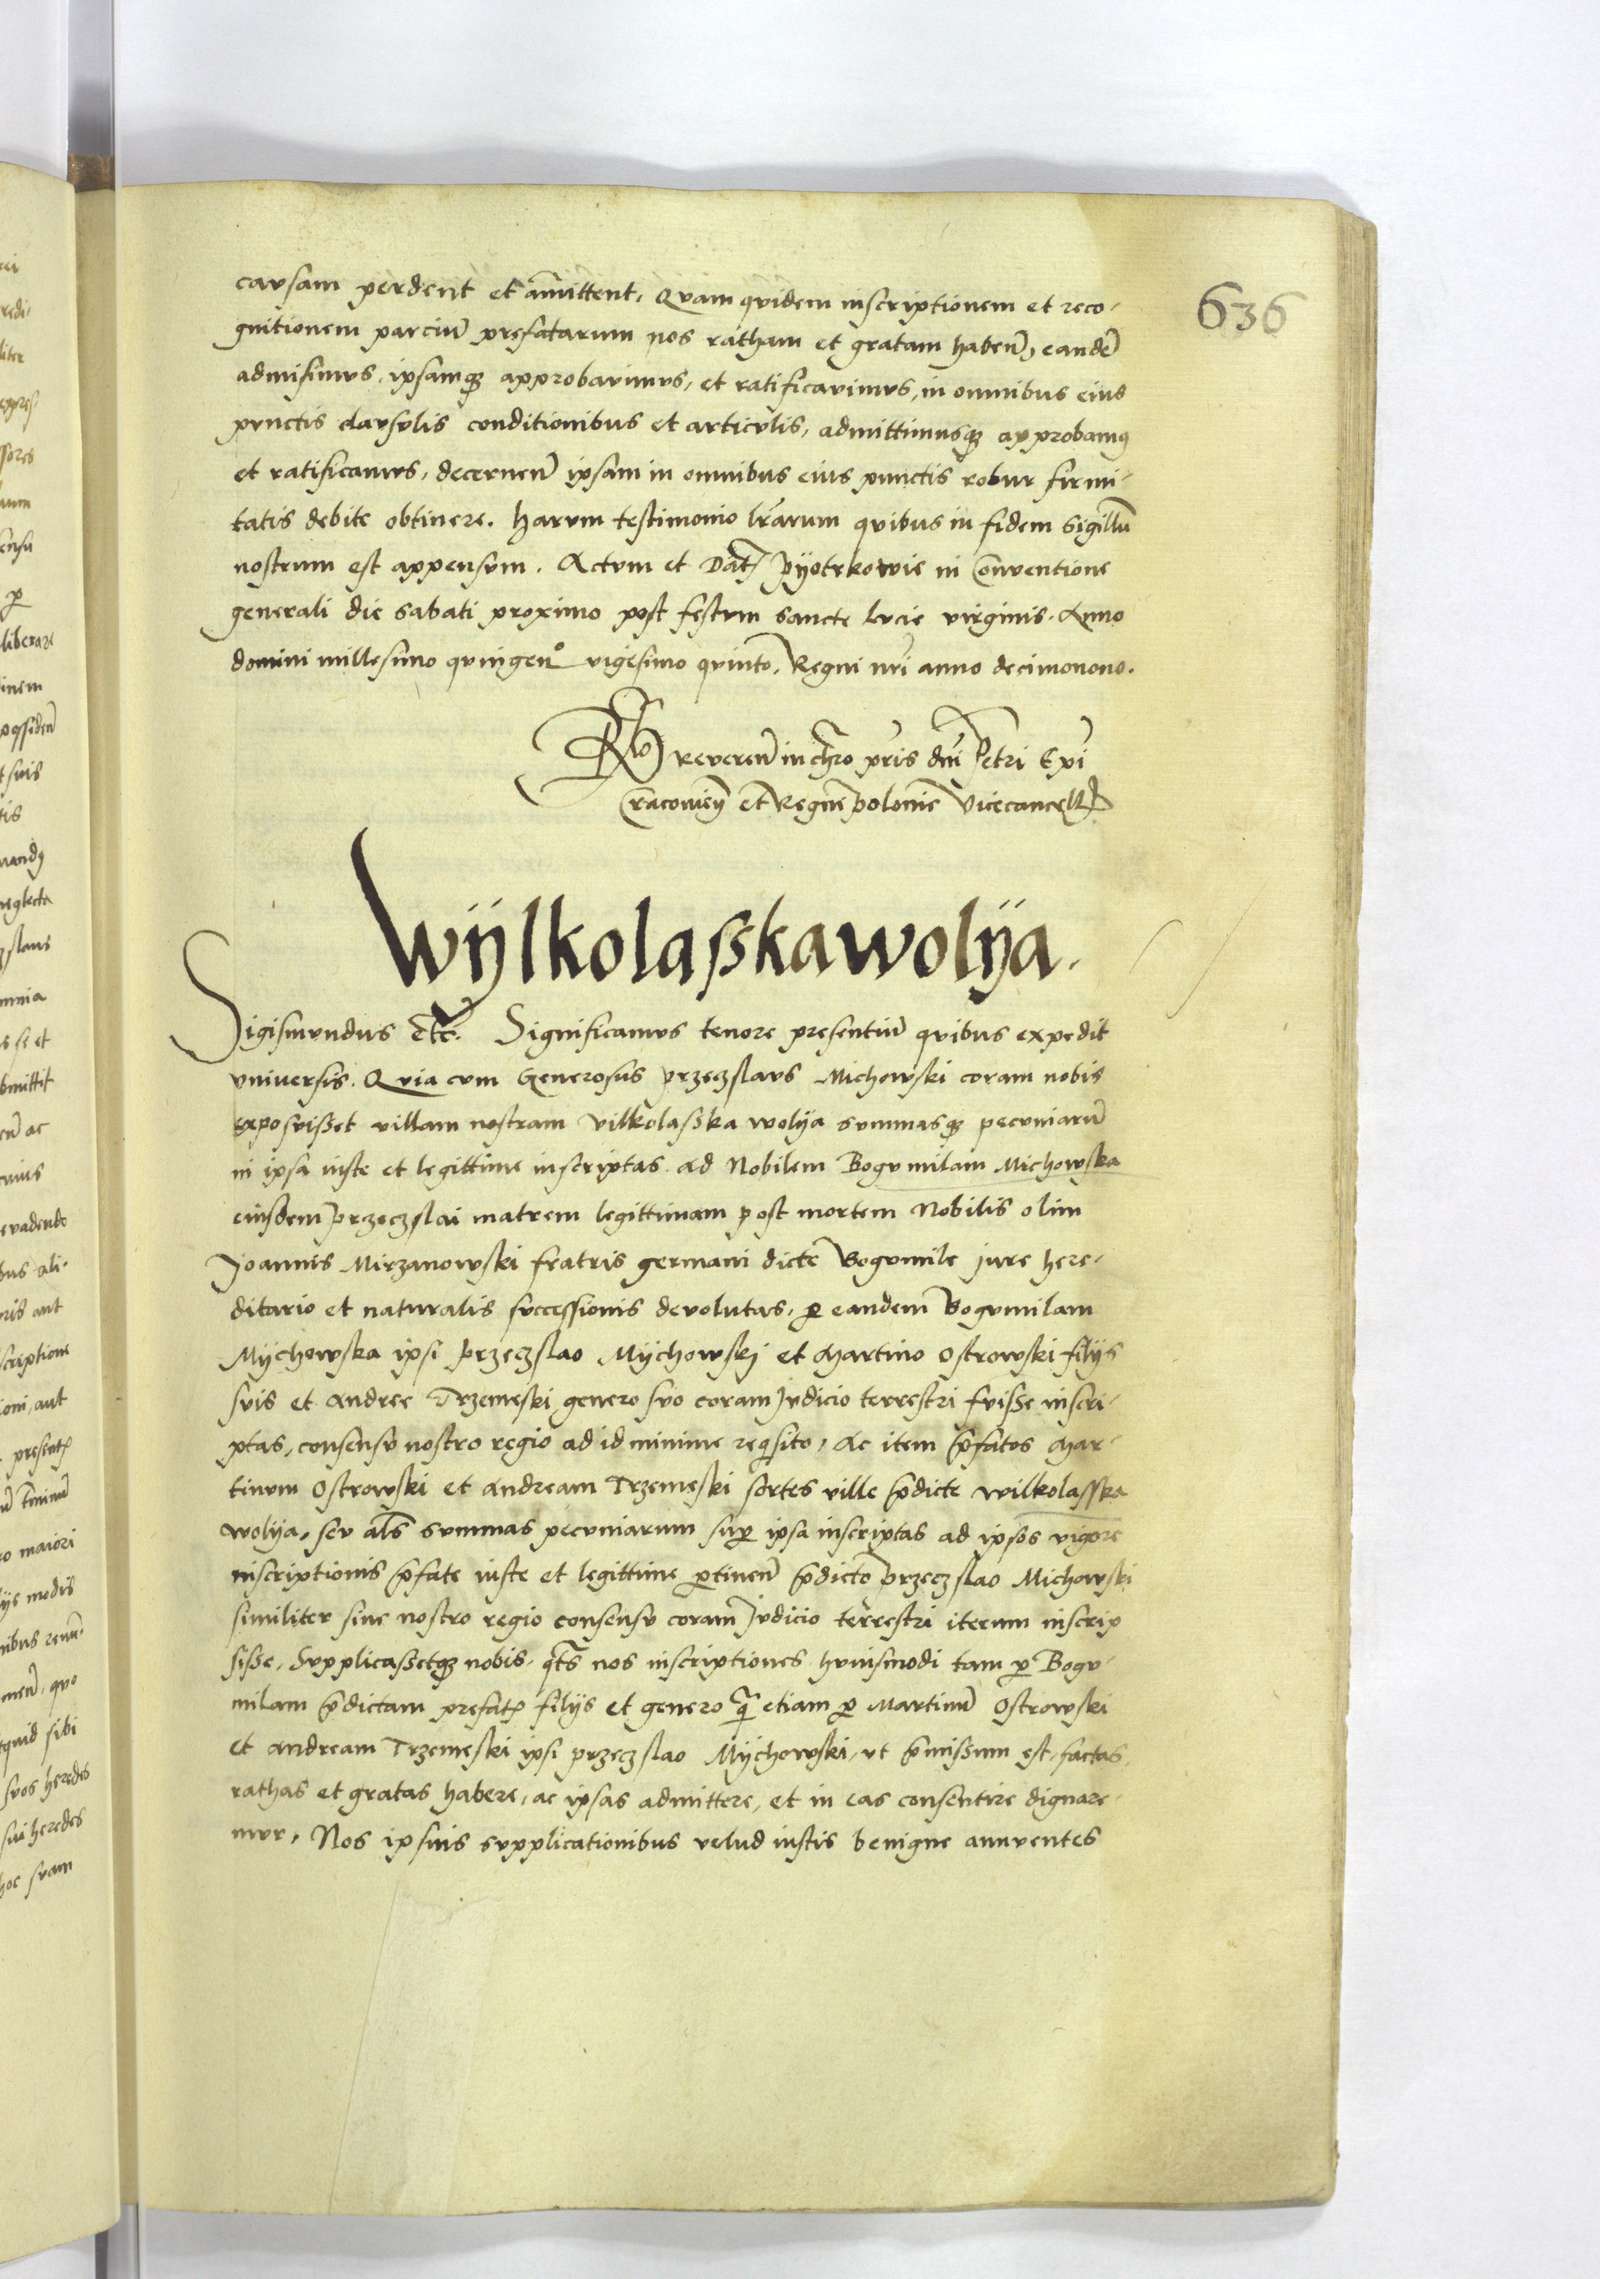 636
causam perdent et amittent, Quam quidem inscriptionem et reco-
gnitionem parciu͂ prefatarum nos ratham et gratam haben͂, eande͂
admisimus, ipsamqꝫ approbavimus, et ratificavimus, in omnibus eius
punctis clausulis conditionibus et articulis, admittimusqꝫ approbamꝰ
et ratificamus, decernen͂ ipsam in omnibus eius punctis robur firmi-
tatis debite obtinere. Harum testimonio lr͂arum quibus in fidem sigillu͂
nostrum est appensum. Actum et Dat͂ Pÿotrkowie in Conventione
generali die sabati proximo post festum sancte Lucie virginis. Anno
domini millesimo quingen° vigesimo quinto. Regni nr͂i anno decimonono.
Rᵒ reveren͂ in chr͂o pr͂is dn͂i Petri Ep͂i
Cracovien͂ et Regni Polonie Vicecancell͂
Wÿlkolaßkawolÿa.
Sigismundus etc͂. Significamus tenore presentiu͂ quibus expedit
universis. Quia cum Generosus Przeczslaus Michowski coram nobis
exposuißet villam nostram Vilkolaßka wolÿa summasqꝫ pecuniaru͂
in ipsa iuste et legittime inscriptas ad Nobilem Bogumilam Michowska
eiusdem Przeczslai matrem legittimam post mortem Nobilis olim
Joannis Mirzanowski fratris germani dicte Bogumile jure here-
ditario et naturalis successionis devolutas, ꝑ eandem Bogumilam
Mÿchowska ipsi Przeczslao Mÿchowskj et Martino Ostrowski filÿs
suis et Andree Trzemeski genero suo coram Judicio terrestri fuisse inscri-
ptas, consensu nostro regio ad id minime reqͥsito, Ac item p͂fatos Mar-
tinum Ostrowski et Andream Trzemeski sortes ville p͂dicte Wilkolasska
wolÿa, seu al͂s summas pecuniarum suꝑ ipsa inscriptas ad ipsos vigore
inscriptionis p͂fate iuste et legittime ꝑtinen͂ p͂dicto Przeczslao Michowski
similiter sine nostro regio consensu coram Judicio terrestri iterum inscrip
sisse, Supplicaßetqꝫ nobis, qͣts nos inscriptiones huiusmodi tam ꝑ Bogu-
milam p͂dictam prefat͂ filÿs et genero qͣ͂ etiam ꝑ Martinu͂ Ostrowski
et Andream Trzemeski ipsi Przeczslao Mÿchowski, ut p͂missum est, factas,
rathas et gratas habere, ac ipsas admittere, et in eas consentire dignare-
mur, Nos ipsius supplicationibus velud iustis benigne annuentes